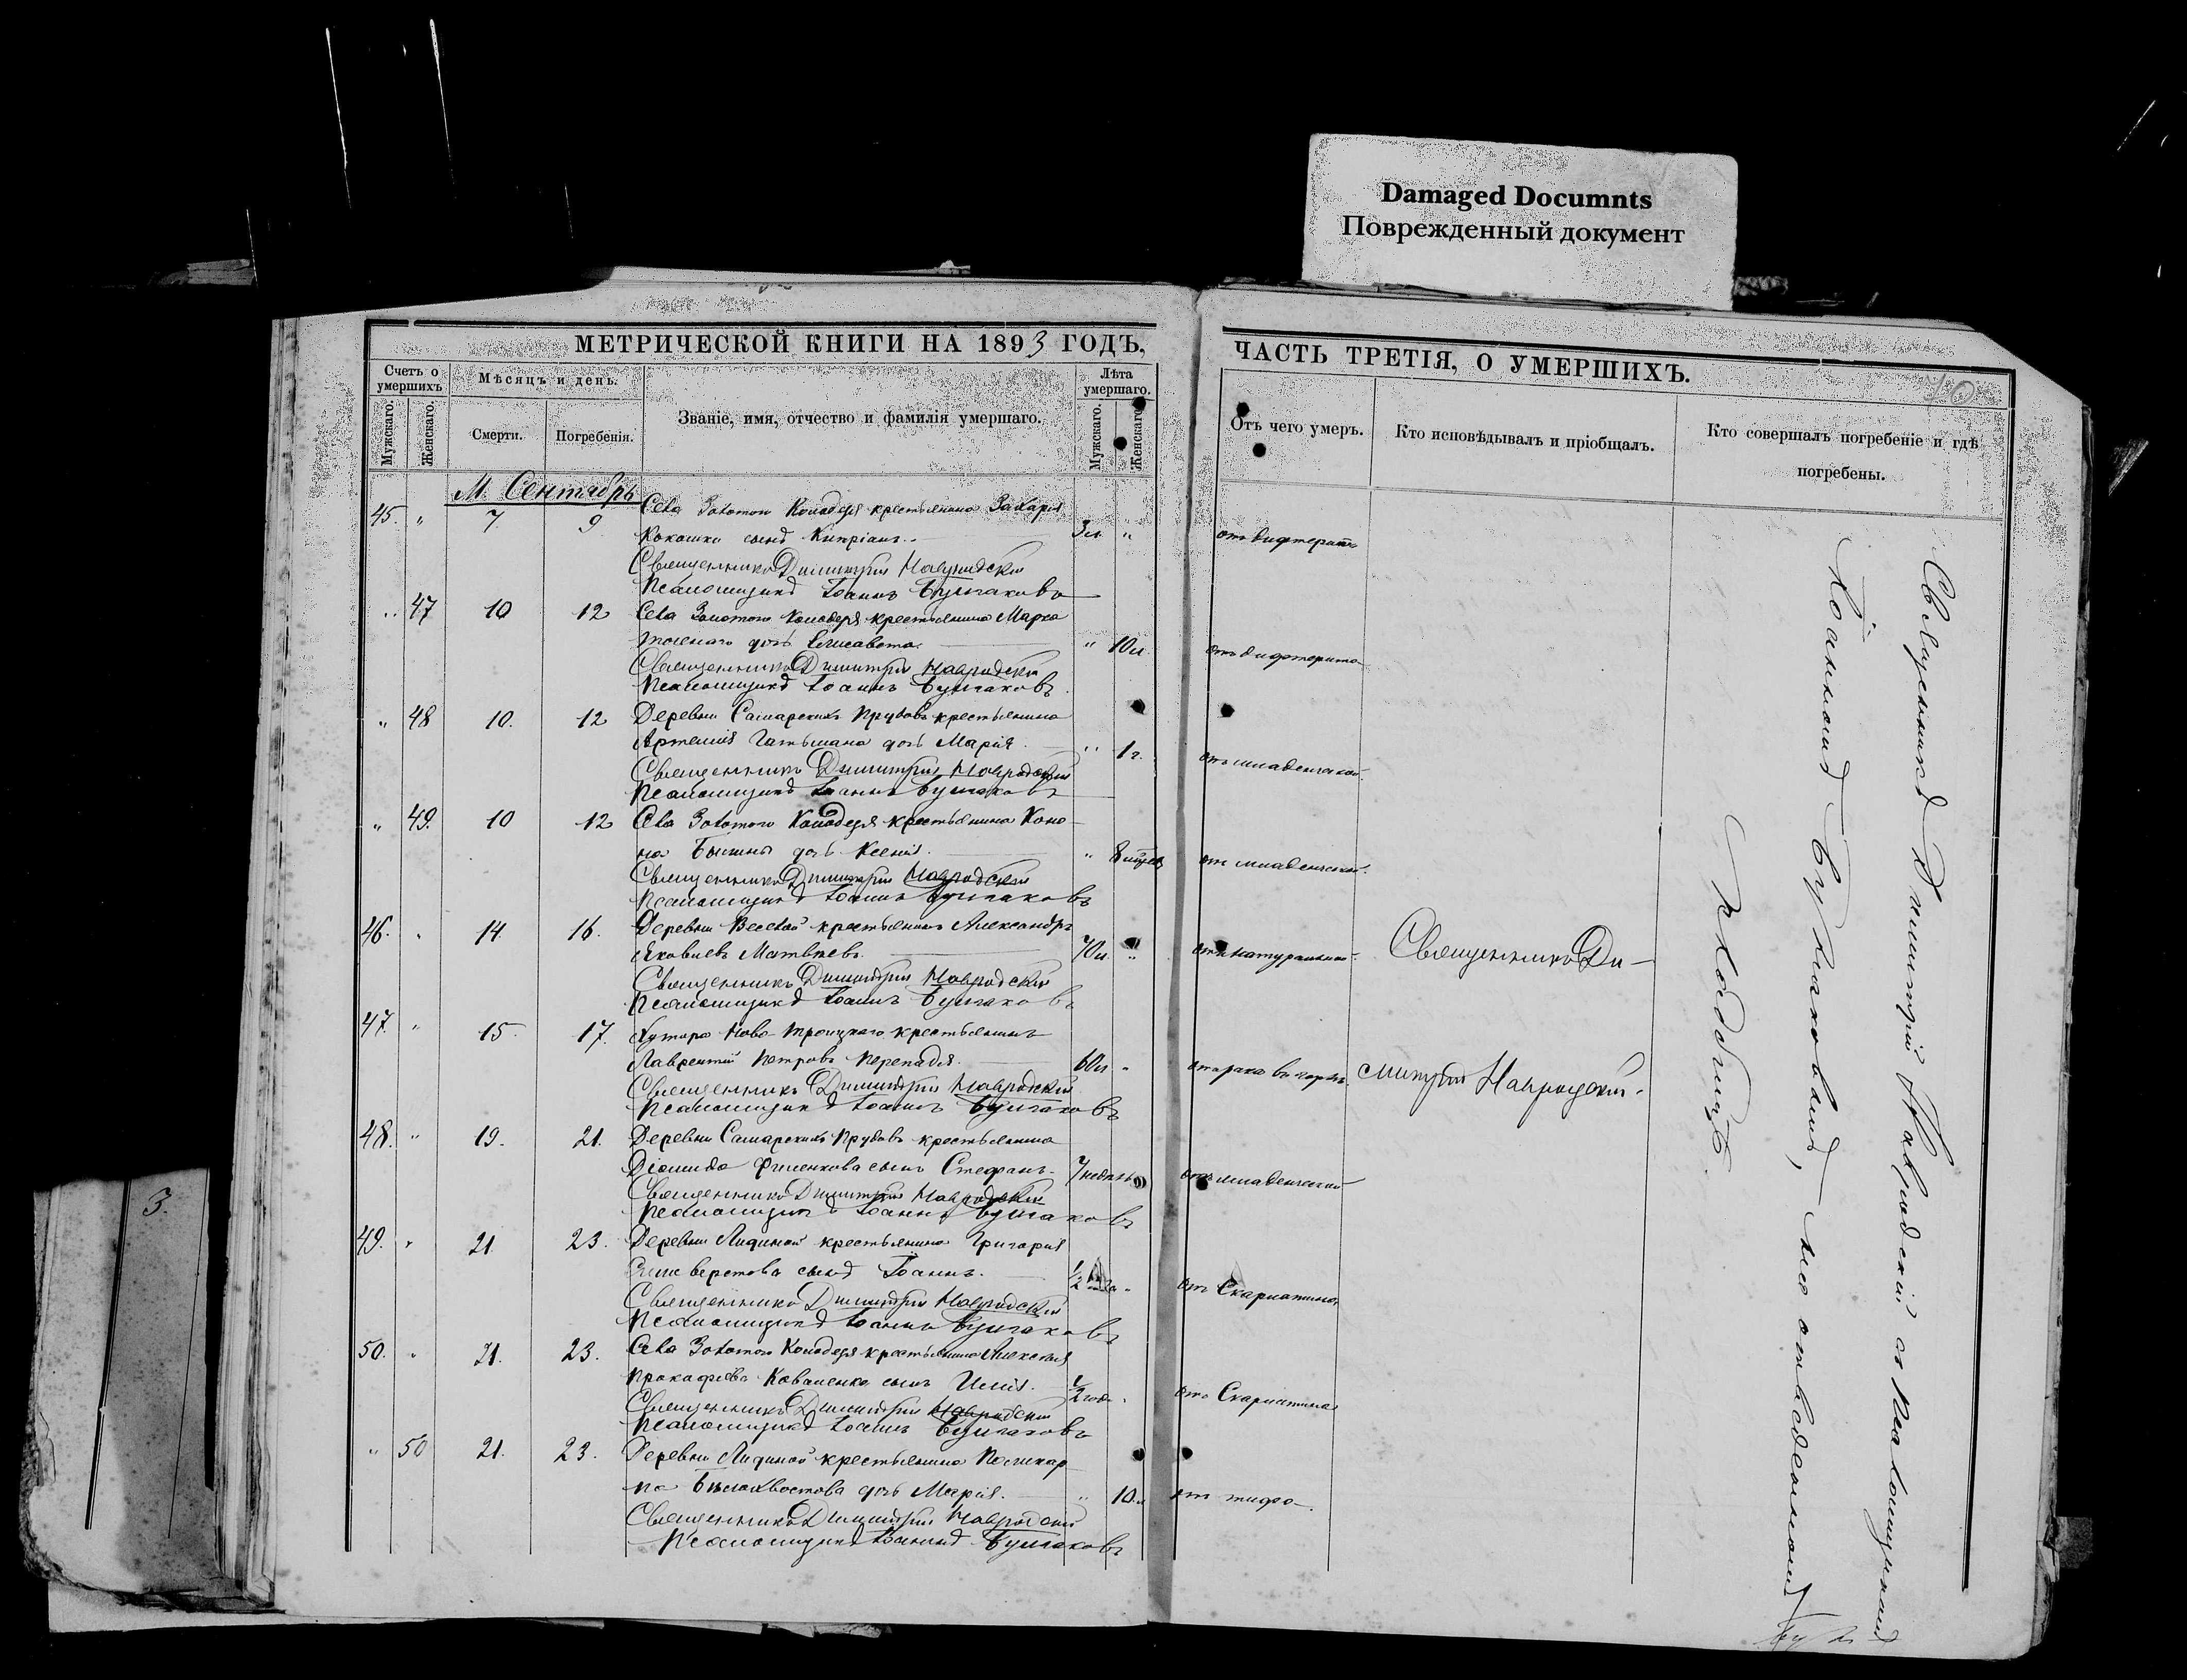 Damaged Documnts
Поврежденный документ
МЕТРИЧЕСКОЙ КНИГИ НА 1893 ГОДЪ,
ЧАСТЬ ТРЕТІЯ, О УМЕРШИХЪ.
Счетъ о умершихъ
Мужскаго.
Женскаго.
Мѣсяцъ и день.
Смерти.
Погребенія.
Званіе, имя, отчество и фамилія умершаго.
Лѣта умершаго.
Мужскаго.
Женскаго.
Отъ чего умеръ.
Кто исповѣдывалъ и пріобщалъ.
Кто совершалъ погребеніе и гдѣ погребены.
М. Сентябрь
45. " 7 9 Села Золотого Колодезя крестьянина Захарія
сынъ Кипріанъ. 3 л. " отъ дифтерита
Священникъ Димитрій Навродскій
Псаломщикъ Іоаннъ Булгаковъ
" 47 10 12 Села Золотого Колодезя крестьянина Марка
дочь Елисавета. " 10 л. отъ дифтерита
Священникъ Димитрій Навродскій
Псаломщикъ Іоаннъ Булгаковъ
" 48 10. 12 Деревни Самарскихъ Прудовъ крестьянина
Артемія Гатьмана дочь Марія. " 1 г. отъ младенческой.
Священникъ Димитрій Навродскій
Псаломщикъ Іоаннъ Булгаковъ
" 49. 10 12 Села Золотого Колодезя крестьянина Коно-
на дочь Ксенія. " 8 отъ младенческой.
Священникъ Димитрій Навродскій
Псаломщикъ Іоаннъ Булгаковъ
46. " 14. 16. Деревни Веселой крестьянинъ Александръ
Яковлевъ Матвѣевъ. 70 л. " отъ натуральной. Священникъ Ди-
Священникъ Димитрій Навродскій
Псаломщикъ Іоаннъ Булгаковъ
47. " 15. 17. Хутора Ново-Троицкаго крестьянинъ
Лаврентій Петровъ Перепадя. 60 л. " отъ рака въ горлѣ. митрій Навродскій.
Священникъ Димитрій Навродскій
Псаломщикъ Іоаннъ Булгаковъ
48. " 19. 21. Деревни Самарскихъ Прудовъ крестьянина
Діомида Филенкова сынъ Стефанъ. 7 недѣль отъ младенческой
Священникъ Димитрій Навродскій
Псаломщикъ Іоаннъ Булгаковъ
49. " 21. 23. Деревни Лидиной крестьянина Григорія
сынъ Іоаннъ. 1/2 отъ Скарлатины
Священникъ Димитрій Навродскій
Псаломщикъ Іоаннъ Булгаковъ
50. " 21. 23. Села Золотого Колодезя крестьянина Алексѣя
Прокофіева Коваленка сынъ Илія. 1/2 года. отъ Скарлатины
Священникъ Димитрій Навродскій
Псаломщикъ Іоаннъ Булгаковъ
" 50 21. 23. Деревни Лидиной крестьянина Поликар-
па Бѣлохвостова дочь Марія. " 10 л. отъ тифа.
Священникъ Димитрій Навродскій
Псаломщикъ Іоаннъ Булгаковъ
Священникъ Димитрій Навродскій съ Псаломщикомъ
Іоанномъ Булгаковымъ, на отведенномъ
кладбищѣ.
3.